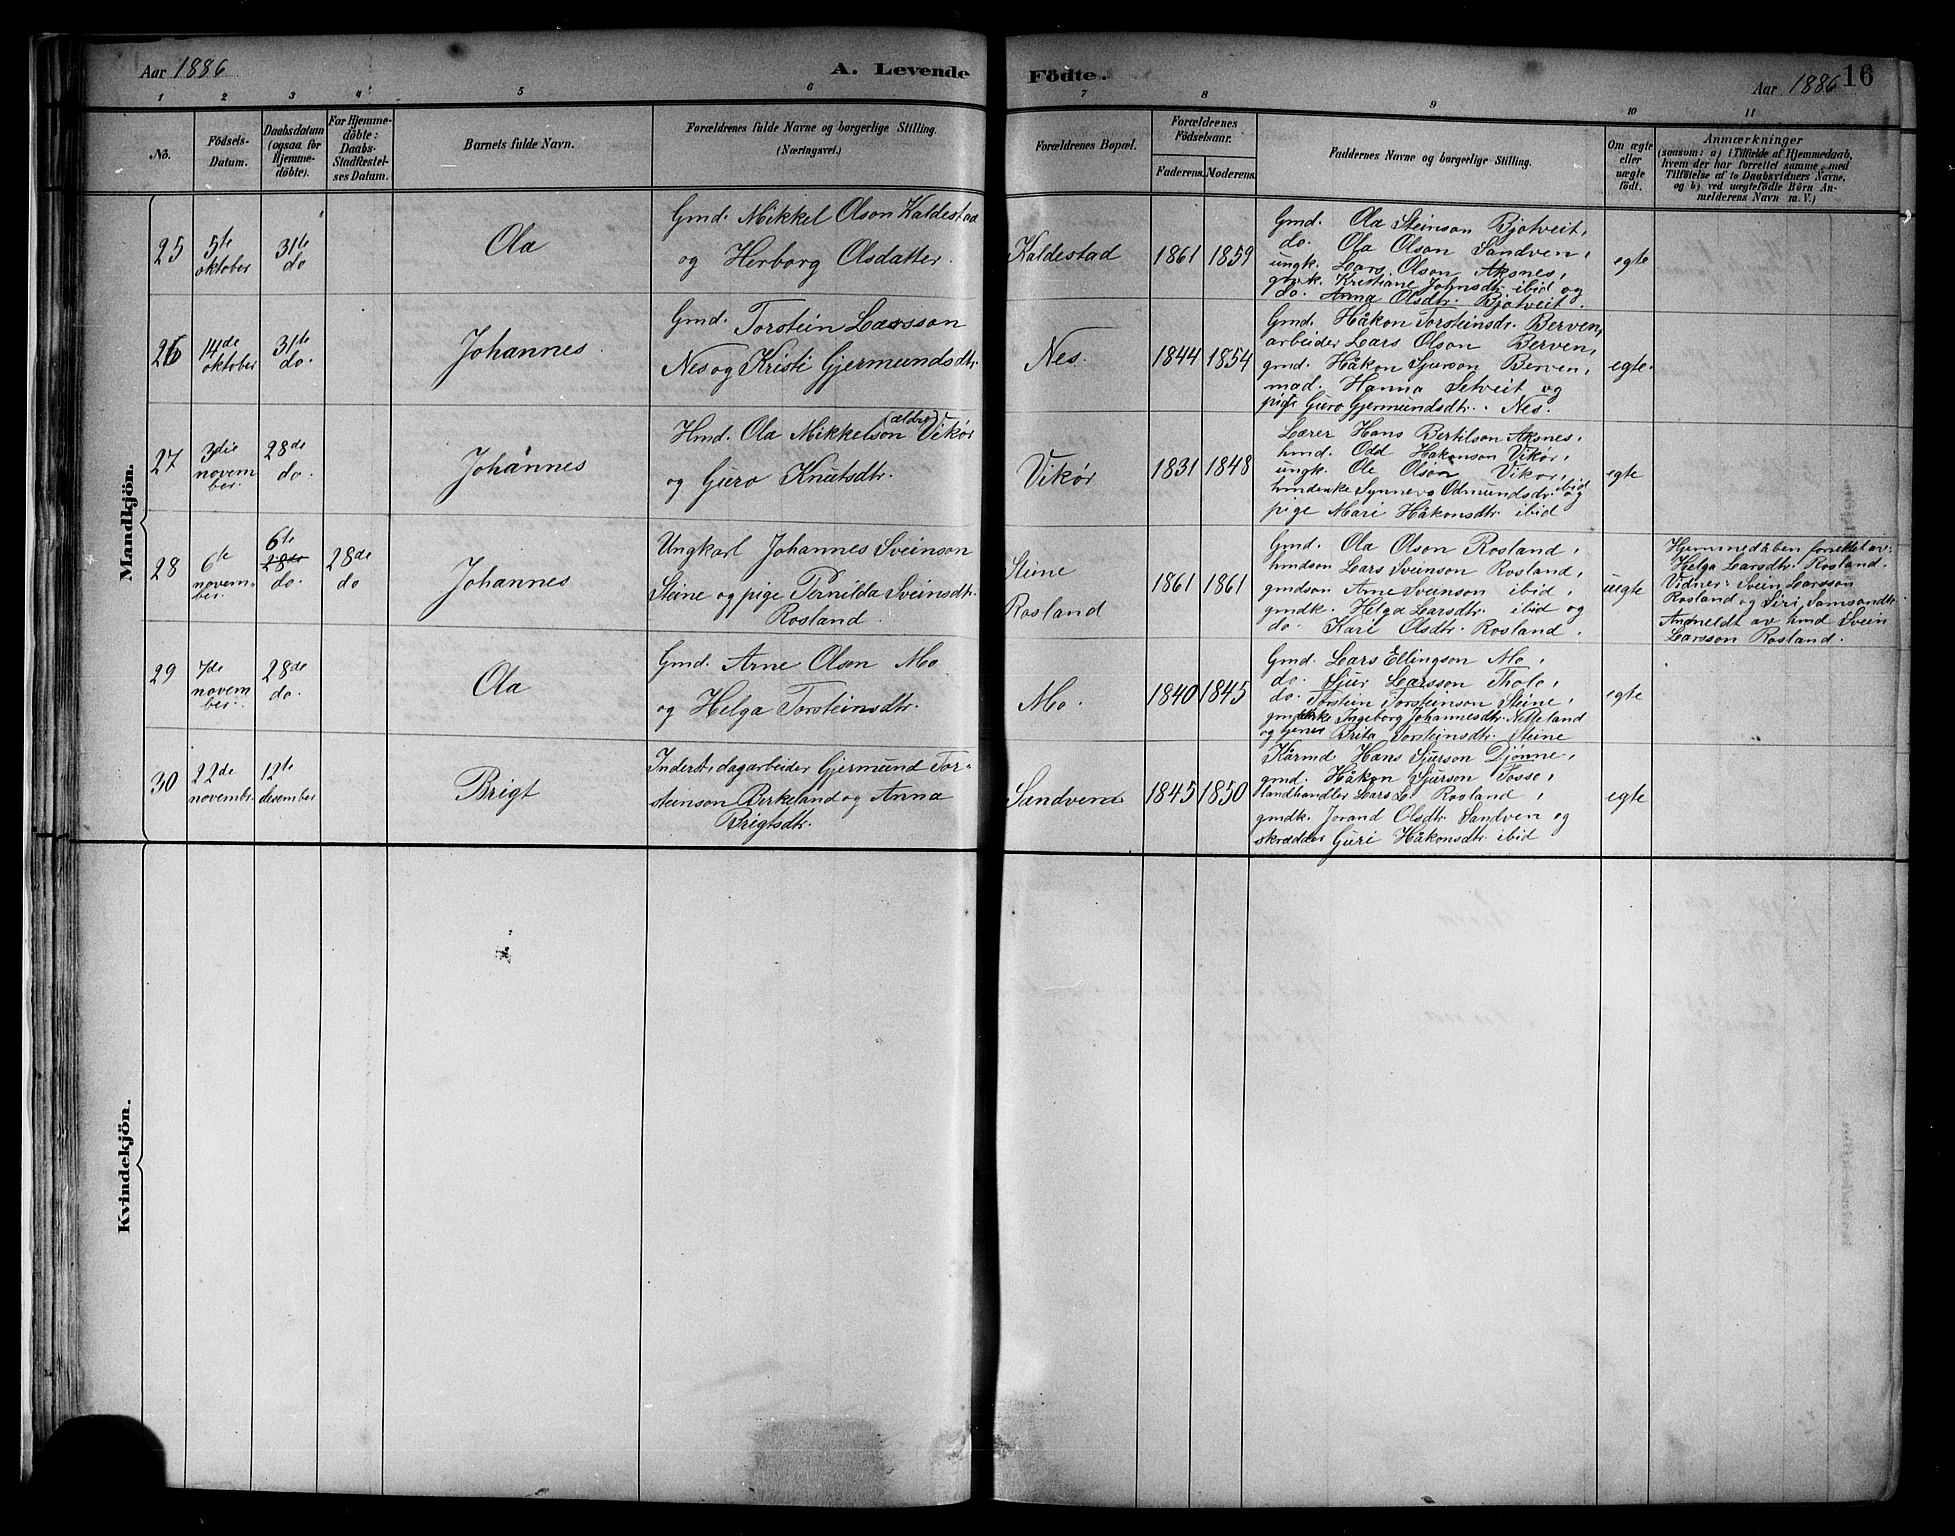 Aar 1886
A. Levende Födte.
Aar 1886
16
1 2 3 4 5 6 7 8 9 10 11
No.
Födsels-
Datum.
Daabsdatum
(ogsaa for
Hjemme-
döbte).
For Hjemme-
döbte:
Daabs-
Stadfæstel-
ses Datum.
Barnets fulde Navn.
Forældrenes fulde Navne og borgerlige Stilling.
(Næringsvei.)
Forældrenes Bopæl.
Forældrenes
Födselsaar.
Faderens. Moderens.
Faddernes Navne og borgerlige Stilling.
Om ægte
eller
uægte
födt.
Anmærkninger
(saasom: a) i Tilfælde af Hjemmedaab,
hvem der har forrettet samme, med
Tilföielse af to Daabsvidners Navne.
og b) ved uægtefödte Börn An-
melderens Navn m. V.)
Mandkjön.
25
5te
oktober
31te
do
Ola
Gmd. Mikkel Olson Kaldestad
og Herborg Olsdatter.
Kaldestad
1861 1859
Gmd. Ola Steinson Bjotveit,
do. Ola Olson Sandven,
ungk. Lars Olson Aksnes,
gmk. Kristiane Johnsdtr. ibid og
do. Anna Olsdtr. Bjotveit.
egte
26
14de
oktober
31te
do.
Johannes.
Gmd. Torstein Larsson
Nes og Kristi Gjermundsdtr.
Nes.
1844 1854
Gmd. Håkon Torsteinsdr. Berven,
arbeider Lars Olson Berven,
gmd. Håkon Sjurson Berven,
mad. Hanna Setveit og
pige Guro Gjermundsdtr. Nes.
egte.
27
3die
novem
ber.
28de
do.
Johannes
Hmd. Ola Mikkelson (ældre) Vikør
og Guro Knutsdtr.
Vikør
1831 1848
Lærer Hans Bertilson Aksnes,
hmd. Odd Håkonson Vikør,
ungk. Ole Olson Vikør,
hmdenke Synneva Odmundsdtr. ibid og
pige Mari Håkonsdtr. ibid
egte
28
6te
novem-
ber.
6te
28de
do.
28de
do
Johannes
Ungkarl Johannes Sveinson
Steine og pige Pernilda Sveinsdtr.
Rosland.
Steine
Rosland
1861 1861
Gmd. Ola Olson Rosland,
hmdson Lars Sveinson Rosland,
gmdson Arne Svenson ibid,
gmdk. Helga Larsdtr. ibid og
do. Kari Olsdtr. Rosland.
uegte
Hjemmedåben forrettet av
Helga Larsdtr. Rosland.
Vidner: Svein Larsson
Rosland og Siri Samsondtr.
Anmeldt av hmd Svein
Larsson Rosland.
29
7de
novem
ber.
28de
do.
Ola
Gmd. Arne Olson Mo
og Helga Torsteinsdtr.
Mo.
1840 1845
Gmd. Lars Ellingson Mo,
do. Sjur Larsson Tholo,
do. Torstein Torsteinson Steine,
gmdenke Ingeborg Johannesdtr. Netteland
og tjener Brita Torsteinsdtr. Steine
egte
30
22de
novembr.
12te
desember
Brigt
Inderst, dagarbeider Gjermund Tor-
steinson Birkeland og Anna
Brigtsdtr.
Sandven
1845 1850
Kårmd Hans Sjurson Djønne,
gmd. Håkon Sjurson Tosse,
landhandler Lars L. Rosland,
gmdk. Jorand Olsdtr. Sandven og
skrædder Guri Håkonsdtr. ibid
egte
Kvindekjön.